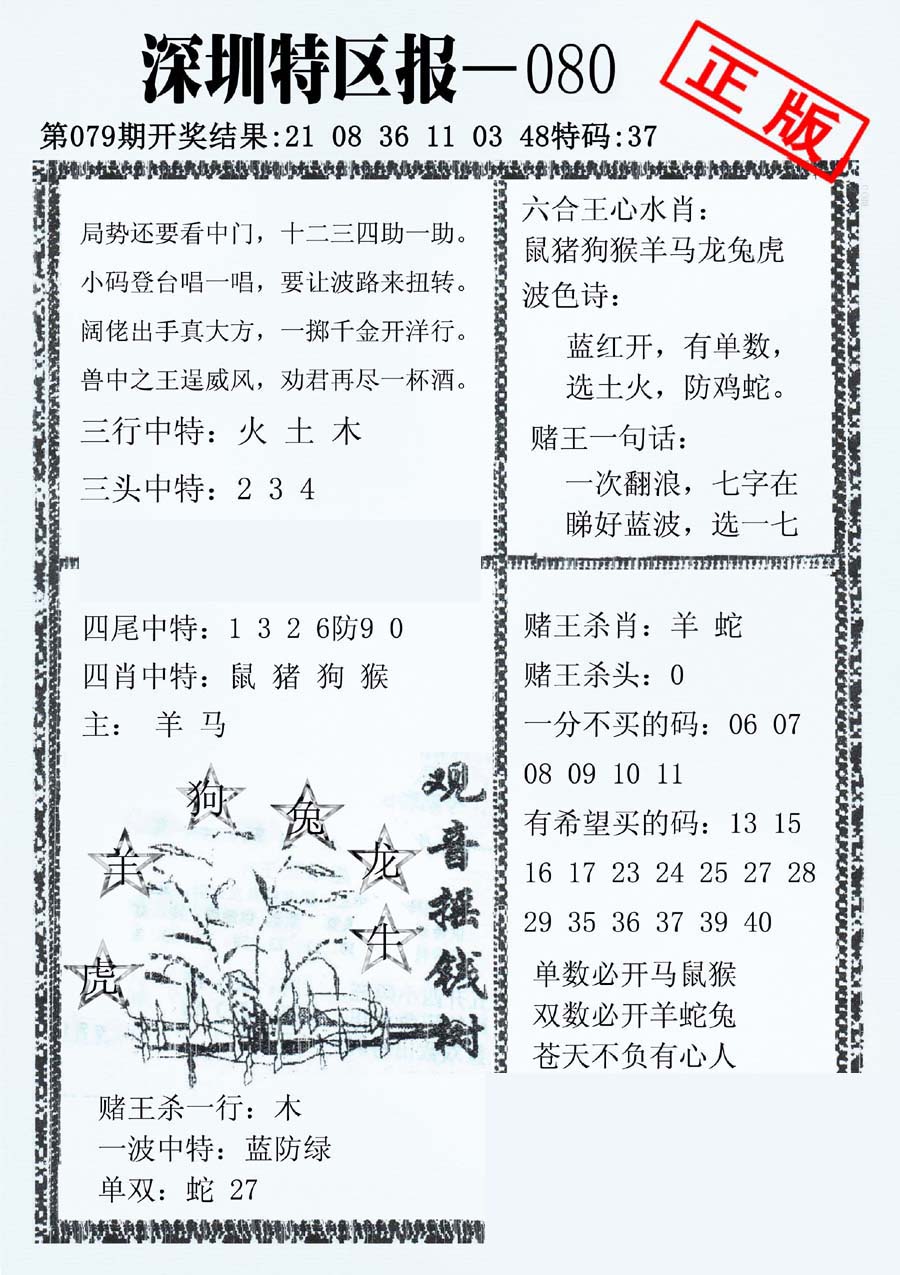 深圳特区报—080
正版
第079期开奖结果:21 08 36 11 03 48特码:37
局势还要看中门，十二三四助一助。
小码登台唱一唱，要让波路来扭转。
阔佬出手真大方，一掷千金开洋行。
兽中之王逞威风，劝君再尽一杯酒。
三行中特：火 土 木
三头中特：2 3 4
六合王心水肖：
鼠猪狗猴羊马龙兔虎
波色诗：
蓝红开，有单数，
选土火，防鸡蛇。
赌王一句话：
一次翻浪，七字在
睇好蓝波，选一七
四尾中特：1 3 2 6防9 0
四肖中特：鼠 猪 狗 猴
主： 羊 马
狗
兔
羊
龙
牛
虎
观音摇钱树
赌王杀一行：木
一波中特：蓝防绿
单双：蛇 27
赌王杀肖：羊 蛇
赌王杀头：0
一分不买的码：06 07
08 09 10 11
有希望买的码：13 15
16 17 23 24 25 27 28
29 35 36 37 39 40
单数必开马鼠猴
双数必开羊蛇兔
苍天不负有心人